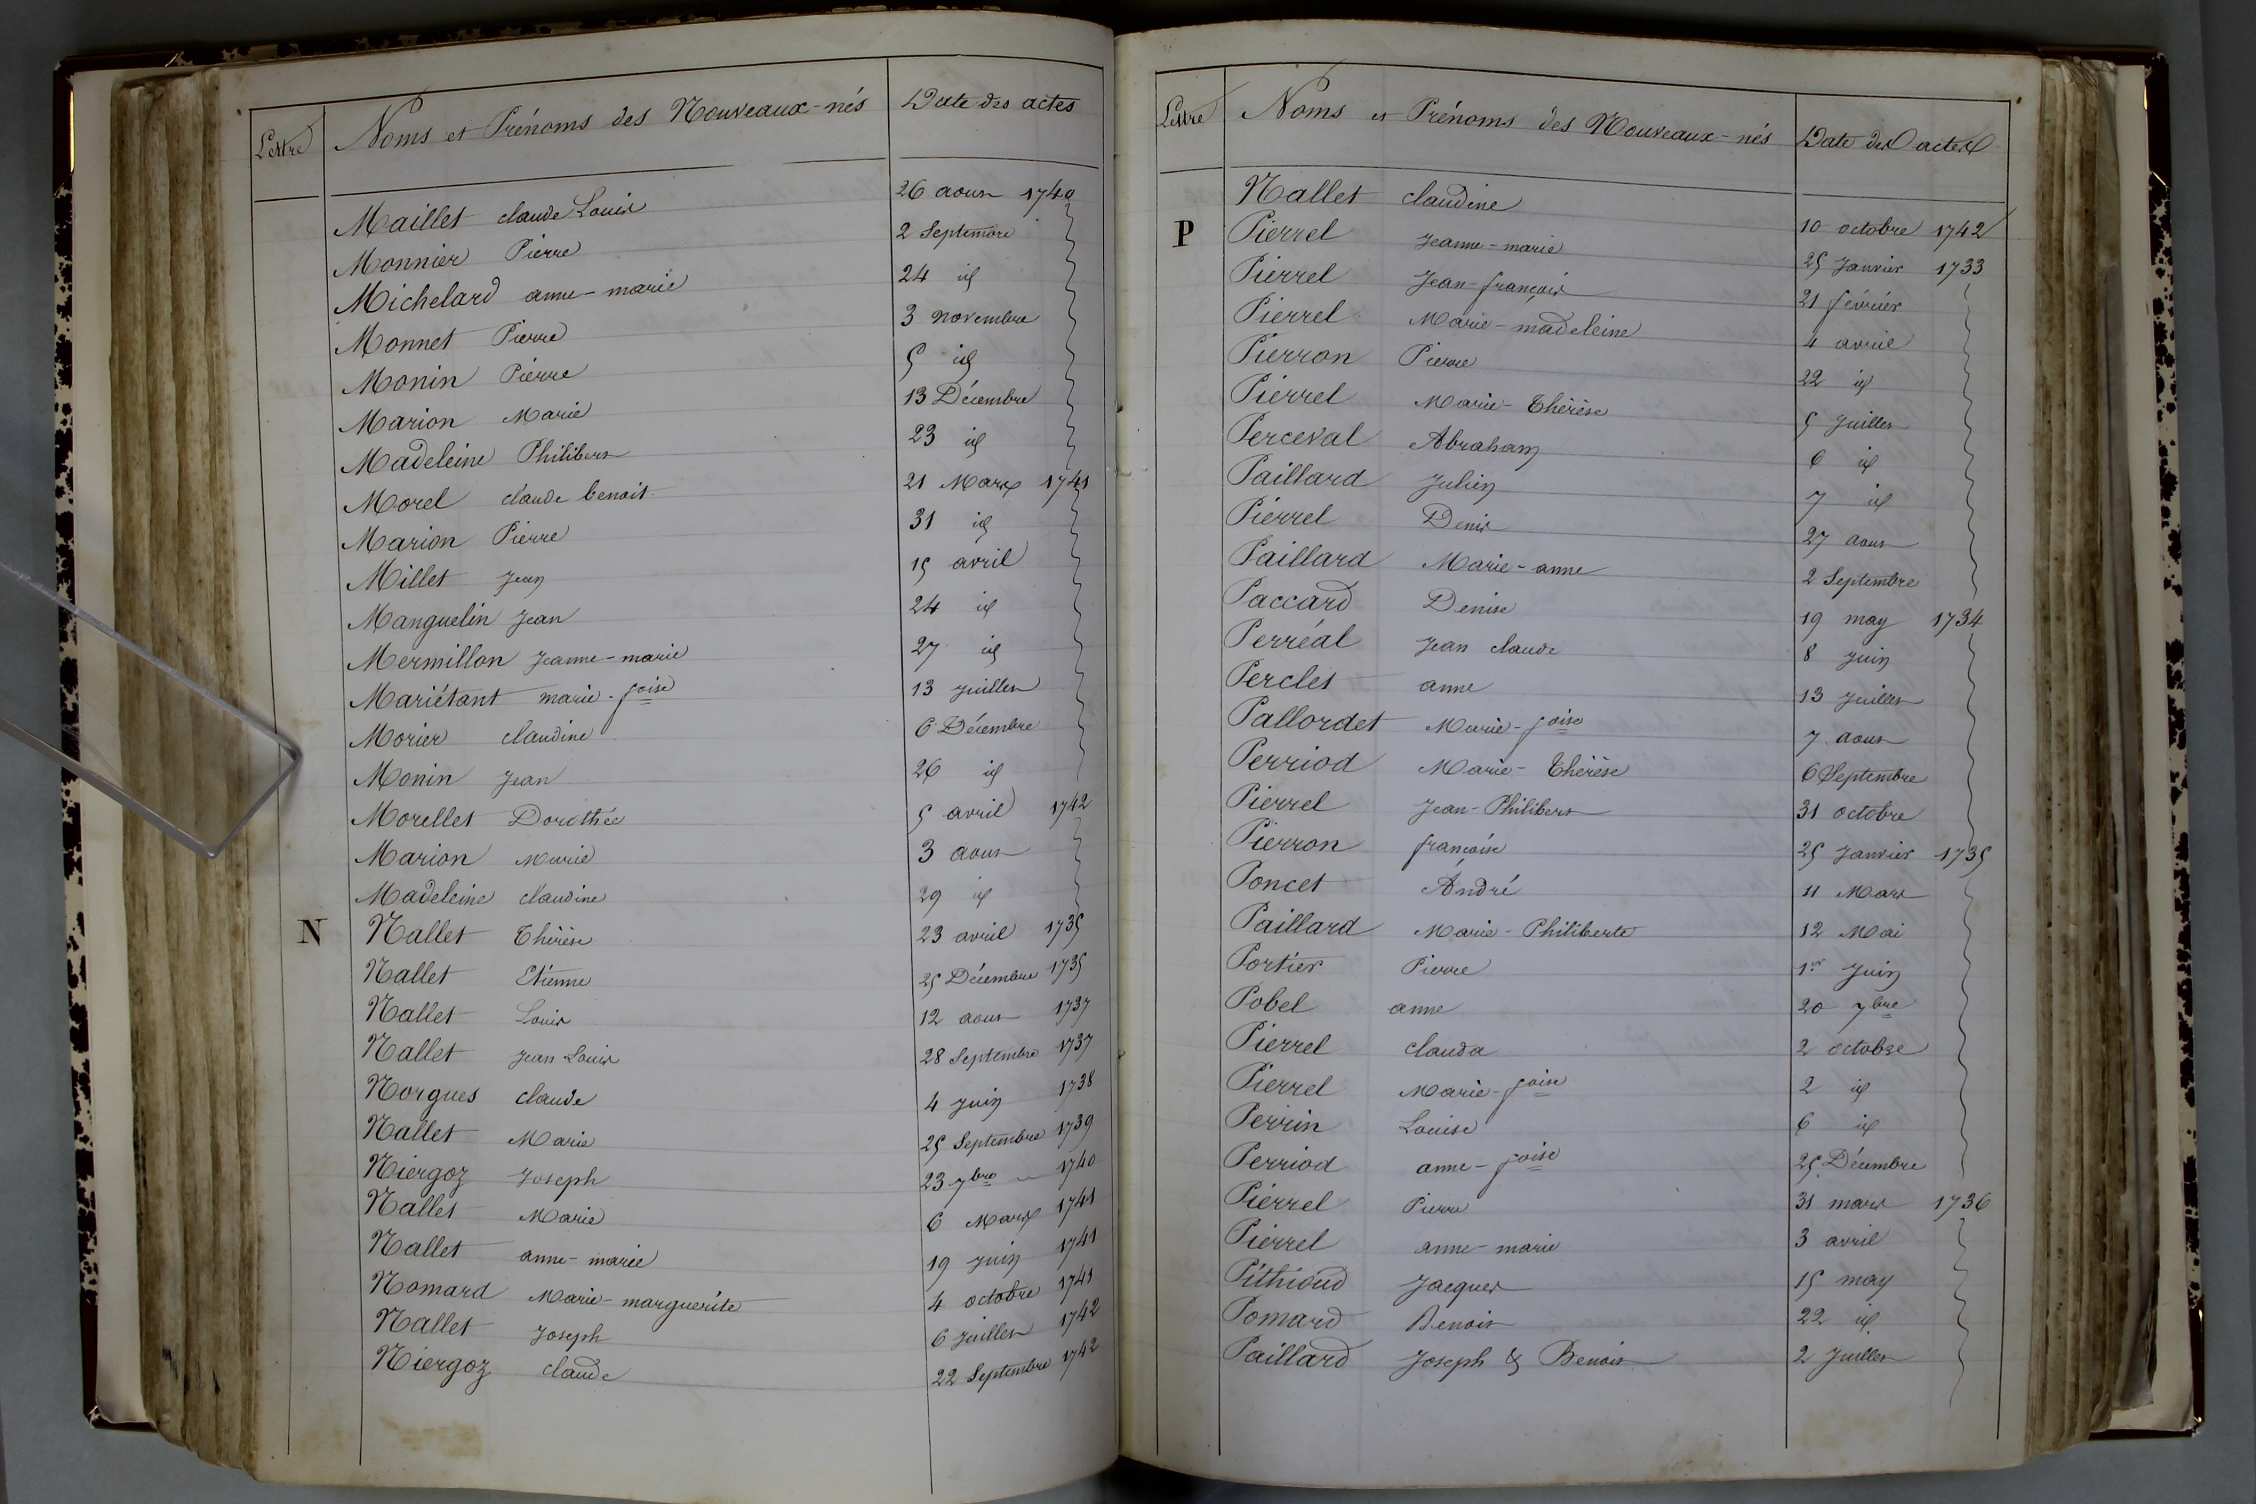 Lettre Noms et Prénoms des Nouveaux-nés Date des actes
Maillet claude Louis 26 aoust 1740
Monnier Pierre 2 Septembre
Michelard anne-marie 24 id
Monnet Pierre 3 novembre
Monin Pierre 5 id
Marion Marie 13 Décembre
Madeleine Philibert 23 id
Morel claude benoit 21 Mars 1741
Marion Pierre 31 id
Millet Jean 15 avril
Manguelin Jean 24 id
Mermillon Jeanne-marie 27 id
Mariétant marie-foise 13 Juillet
Morier claudine 6 Décembre
Monin Jean 26 id
Morellet Dorothée 5 avril 1742
Marion Marie 3 aoust
Madeleine claudine 29 id
N Nallet Thérèse 23 avril 1735
Nallet Etienne 25 Décembre 1735
Nallet Louis 12 aoust 1737
Nallet Jean Louis 28 Septembre 1737
Norgues claude 4 Juin 1738
Nallet Marie 25 Septembre 1739
Niergoz Joseph 23 7bre 1740
Nallet Marie 6 Mars 1741
Nallet anne-marie 19 Juin 1741
Nomard Marie-marguerite 4 octobre 1741
Nallet Joseph 6 Juillet 1742
Niergoz claude 22 Septembre 1742
Lettre Noms et Prénoms des Nouveaux-nés Date des actes
Nallet claudine 10 octobre 1742
P Pierrel Jeanne-marie 25 Janvier 1733
Pierrel Jean-françois 21 février
Pierrel Marie-madeleine 4 avril
Pierron Pierre 22 id
Pierrel Marie-Thérèse 5 Juillet
Perceval Abraham 6 id
Paillard Julien 7 id
Pierrel Denis 27 aoust
Paillard Marie-anne 2 Septembre
Paccard Denise 19 may 1734
Perréal Jean claude 8 Juin
Perclet anne 13 Juillet
Pallordet Marie-foise 7 aoust
Perriod Marie-Thérèse 6 Septembre
Pierrel Jean-Philibert 31 octobre
Pierron françoise 25 Janvier 1735
Poncet André 11 Mars
Paillard Marie-Philiberte 12 Mai
Portier Pierre 1er Juin
Pobel anne 20 7bre
Pierrel clauda 2 octobre
Pierrel Marie-foise 2 id
Perrin Louise 6 id
Perriod anne-foise 25 Décembre
Pierrel Pierre 31 mars 1736
Pierrel anne-marie 3 avril
Pithioud Jacques 15 may
Pomard Benoit 22 id
Paillard Joseph & Benoit 2 Juillet